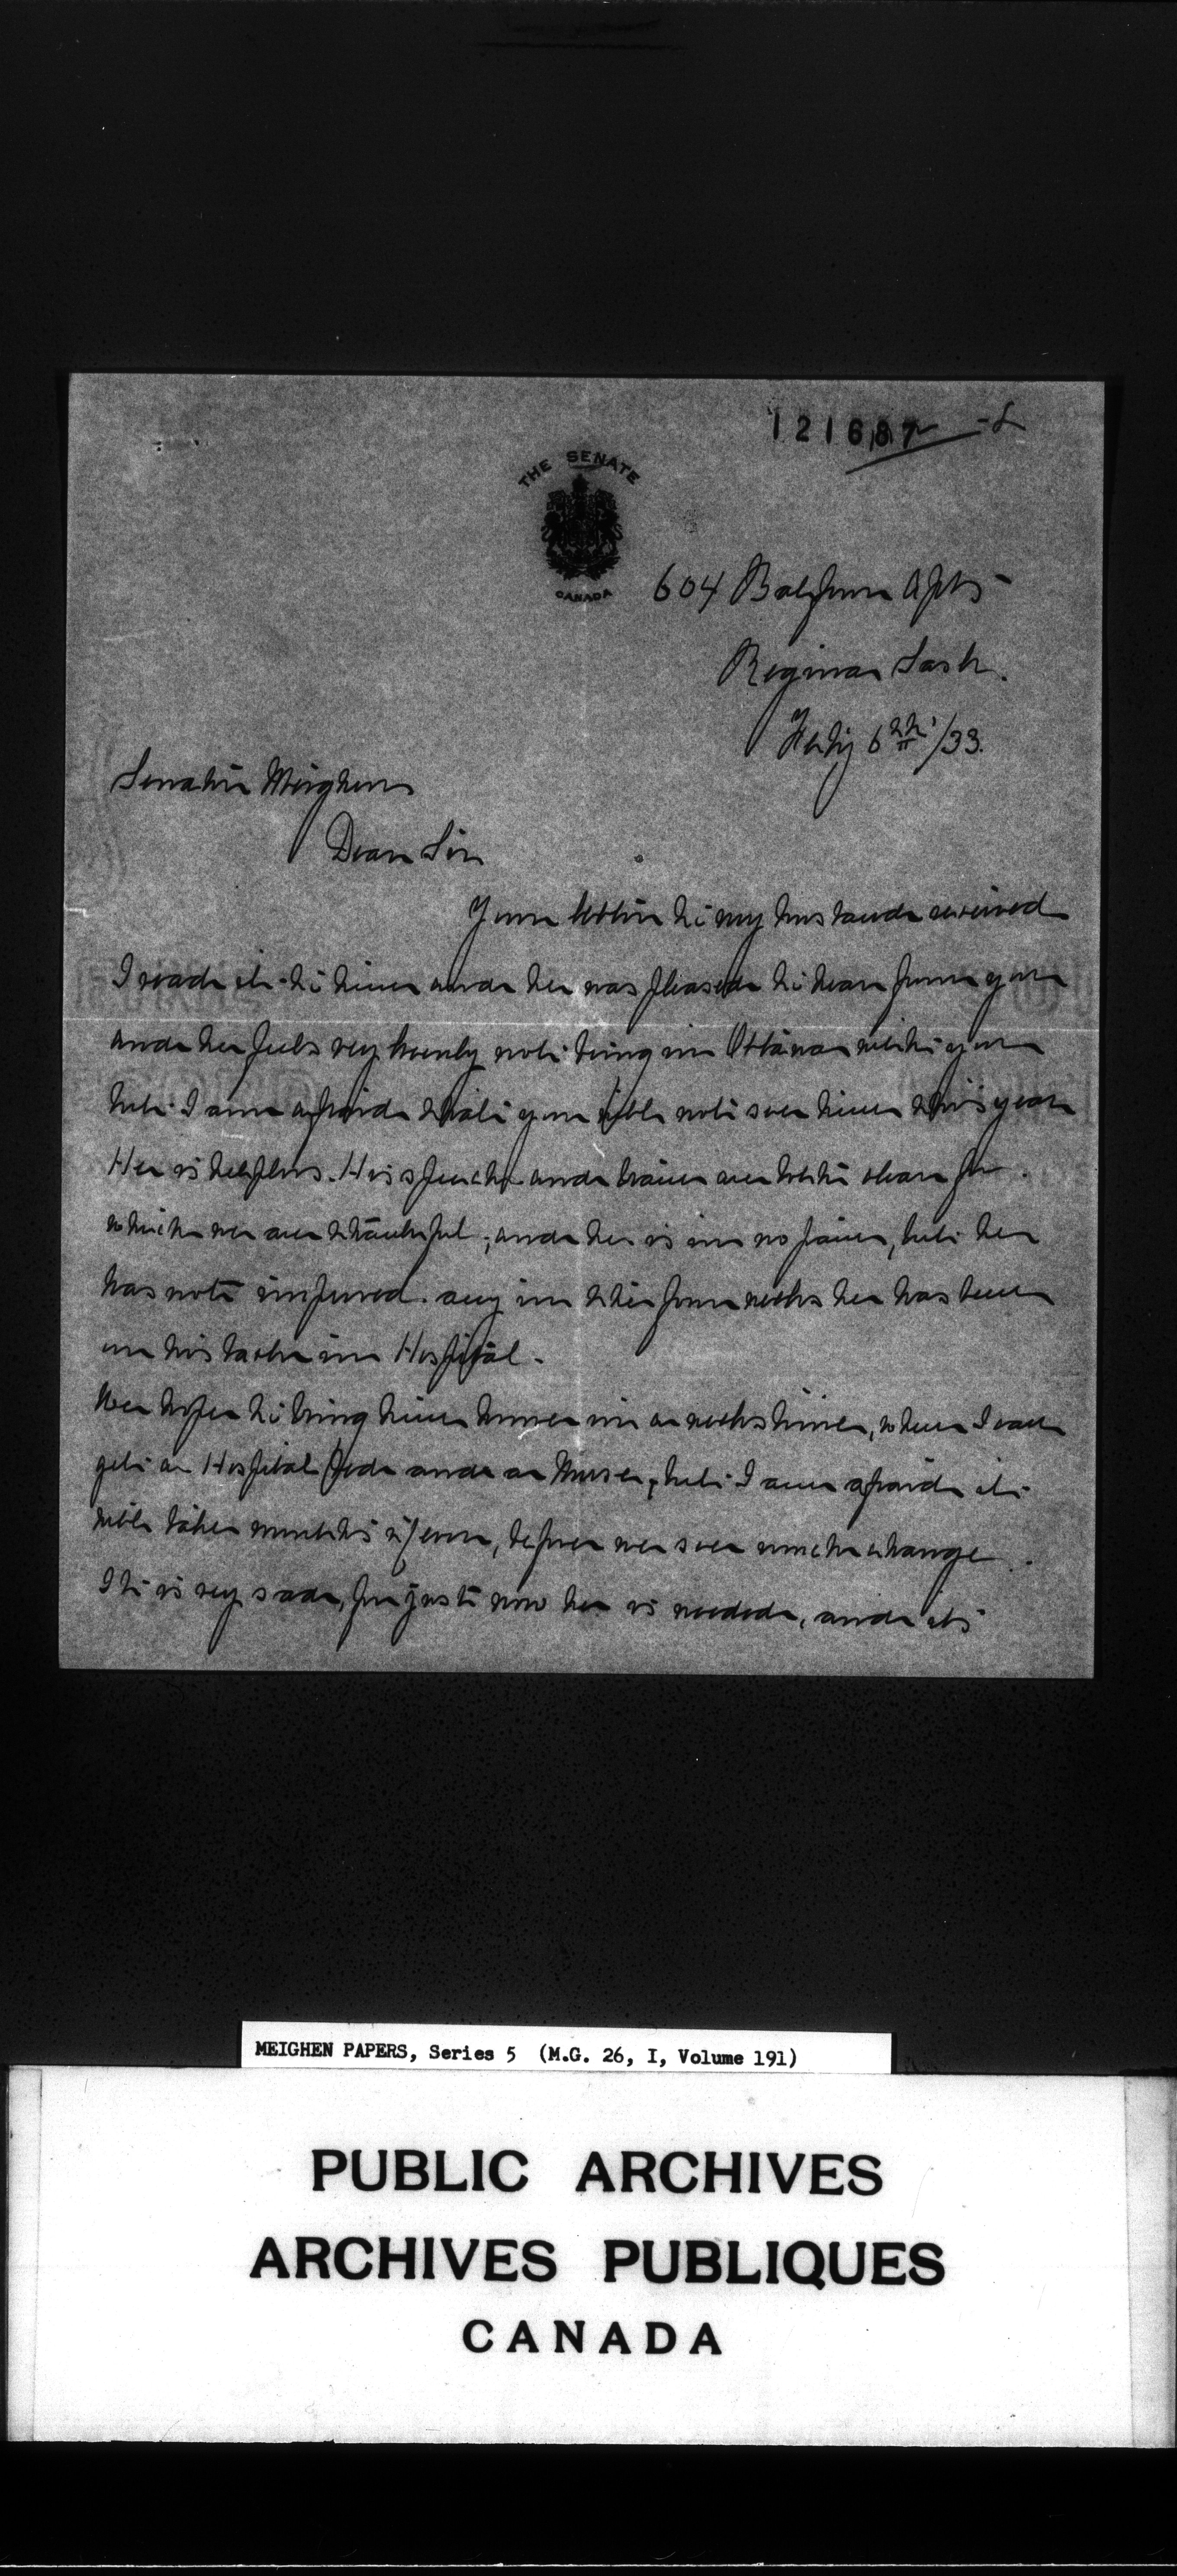 121687
THE SENATE
CANADA
604 Balfour Apts
Regina Sask.
Feb'y 6th /33.
Senator Meighen
Dear Sir
Your letter to my husband received
I read it to him and he was pleased to hear from you
and he feels very keenly not being in Ottawa with you
but I am afraid that you will not see him this year
He is helpless. His speech and brain are both clear for
which we are thankful, and he is in no pain, but he
has not improved any in the four weeks he has been
on his back in Hospital.
We hope to bring him home in a weeks time, when I can
get a Hospital Bed and a Nurse, but I am afraid it
will take months if ever, before we see much change.
It is very sad, for just now he is needed, and its
MEIGHEN PAPERS, Series 5 (M.G. 26, I, Volume 191)
PUBLIC ARCHIVES
ARCHIVES PUBLIQUES
CANADA